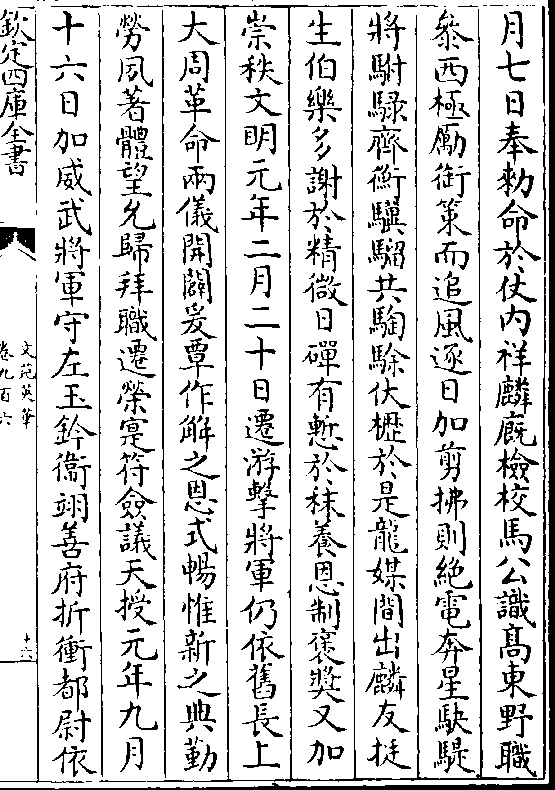 月七日奉勅命於仗内祥麟廐檢校馬公識髙東野職
叅西極厲銜策而追風逐日加剪拂則絶電奔星駃騠
將駙騄齊衡驥騮共騊駼伏櫪於是龍媒間出麟友挺
生伯樂多謝於精微日磾有慙於秣養恩制襃奬又加
崇秩文明元年二月二十日遷游擊將軍仍依舊長上
大周革命兩儀開闢爰覃作解之恩式暢惟新之典勤
勞夙著體望允歸拜職遷榮寔符僉議天授元年九月
十六日加威武將軍守左玉鈐衞翊善府折衝都尉依
欽定四庫全書
文苑英華
卷九百六
十六